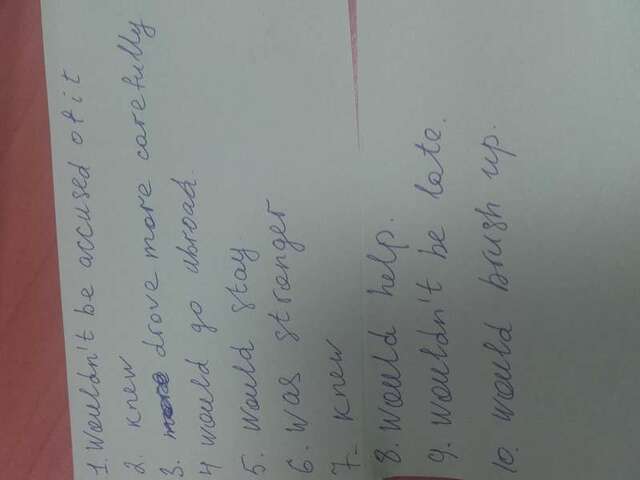 1. Wouldn't be accused of it
2. knew
3. drove more carefully
4 would go abroad.
5. Would stay
6. was stronger
7- knew
8. Would help.
9. Wouldn't be late.
10. would brush up.